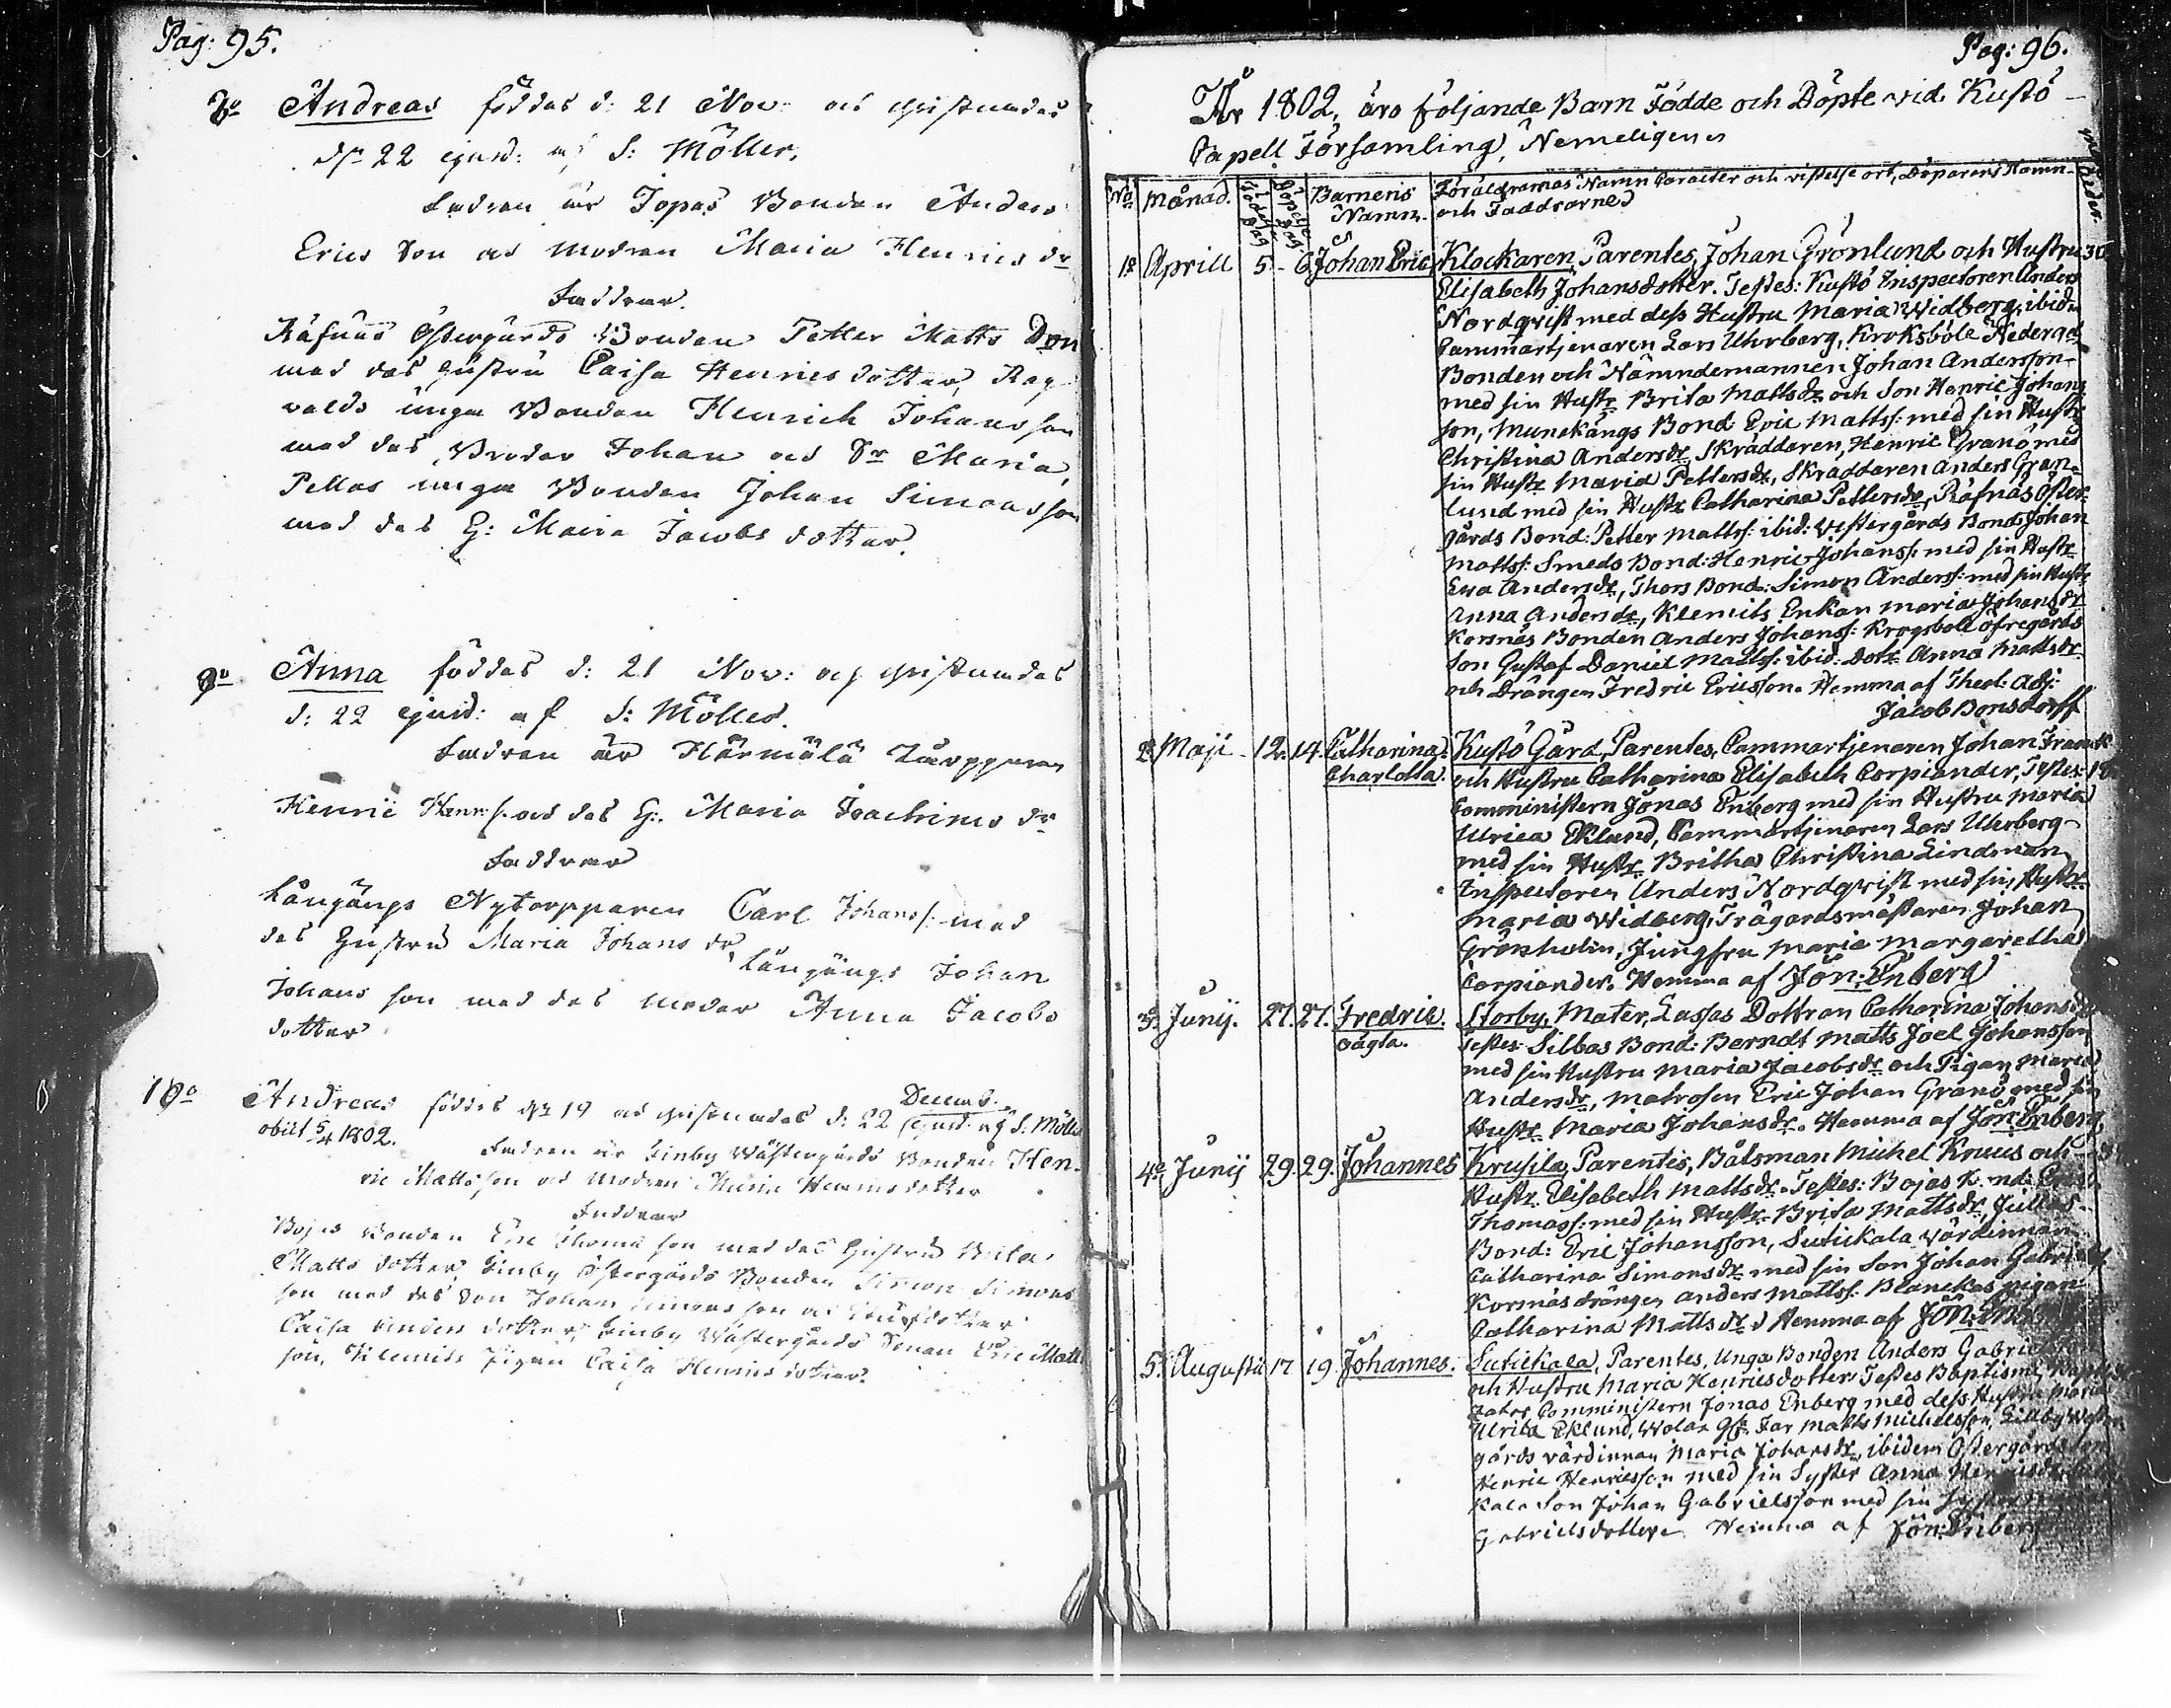 Pag: 95.
Andreas föddes d: 21 Nov: och christnades
d: 22 ejusd: af S: Möller.
Fadren är Jopas Bonden Anders
Erics Son och Modren Maria Henrics dr
Faddrar.
Räfnäs Östergårds Bonden Petter Matts Son
med des hustru Caisa Henrics dotter, Rag
valds unga Bonden Henrich Johansson
med des Broder Johan och Sr Maria,
Pellas unga Bonden Johan Simonsson
med des H: Maria Jacobs dotter.
Anna föddes d: 21 Nov: och christnades
d: 22 ejusd: af S: Möller.
Fadren är Härmälä Torpparen
Henric Henr:s. och des H: Maria Joachims dr
Faddrar
Långängs Nytorpparen Carl Johans s: med
des Hustru Maria Johans dr, Långängs Johan
Johans son med des moder Anna Jacobs
dotter
10o Andreas föddes d: 19 och christnades d: 22 Decemb. ejusd: af S: Möller
obiit 5/4 1802.
Fadren är Linby Wästergårds Bonden Hen-
ric Mattsson och Modren Maria Henrics dotter
Faddrar
Bojas Bonden Eric Thomas son med des Hustru Brita
Matts dotter, Linby Östergårds Bonden Simon Simons
son med des Son Johan Simons son och
Caisa Anders dotter, Linby Wästergårds Sonen Eric Matts
son, Klemits Pigan Caisa Henrics dotter.
Pag: 96.
År 1802, äro följande Barn Födde och Döpte vid Kustö
Capell Församling, Nemeligen
No Månad. Födelse Dag Döpelse Dag Barnens Namn. Föräldrarnas Namn Caracter och vistelse ort, Döparens Namn
och Faddrarne
1o Aprill 5 - 6 Johan Eric Klockaren, Parentes, Johan Grönlund och Hustru 30
Elisabeth Johansdotter. Testes: Kustö Inspectoren Anders
Nordqvist med dess Hustru Maria Widberg, ibid:
Cammartjenaren Lars Uhrberg, Kroksböle Nedergds
Bonden och Nämndemannen Johan Andersson
med sin Hustr Brita Matts dr och Son Henric Johans
son, Munckängs Bond: Eric Matts s: med sin Hustr
Christina Anders dr, Skräddaren, Henric Granö med
sin Hustr Maria Petters dr, Skräddaren Anders Grön-
lund med sin Hustr Catharina Petters dr, Räfnäs Öster-
gårds Bond: Petter Matts s: ibid: Westergårds Bond: Johan
Matts s: Smeds Bond: Henric Johans s: med sin Hustr
Eva Anders dr, Thors Bond: Simon Anders s: med sin Hustr
Anna Anders dr, Klemits Enkan Maria Johans dr
Korsnäs Bonden Anders Johans s: Krogsböle öfregårds
Son Gustaf Daniel Matts s: ibid: Dotr Anna Matts dr
och Drängen Fredric Ericsson. Hemma af Theol: Adj:
Jacob Bonsdorff
2o Maji - 12. 14. Catharina Charlotta. Kustö Gård, Parentes, Cammartjenaren Johan Franck
och Hustru Catharina Elisabeth Carpiander, Testes:
Comministern Jonas Enberg med sin Hustru Maria
Ulrica Eklund, Cammartjenaren Lars Uhrberg
med sin Hustr Britha Christina Lindman
Inspectoren Anders Nordqvist med sin Hustr
Maria Widberg, Trägårdsmästaren Johan
Grönholm, Jungfru Maria Margaretha
Carpiander. Hemma af Jon: Enberg
3o Junij. 27. 27. Fredric. oägta. Storby, Mater, Lassas Dottran Catharina Johans dr
Testes Silbas Bond: Berndt Matts Joel Johansson
med sin Hustru Maria Jacobs dr och Pigan Maria
Anders dr, Matrosen Eric Johan Granö med sin
Hustr Maria Johans dr. Hemma af Jon: Enberg,
4o Junij 29. 29. Johannes Krusila, Parentes, Båtsman Michel Kruus och
Hustr Elisabeth Matts dr. Testes: Bojas Bond:
Thomas s: med sin Hustr Brita Matts dr, Jullas
Bond: Eric Johansson, Sutickala Värdinnan
Catharina Simons dr med sin Son Johan Gabriels s
Korsnäs drängen Anders Matts s: Blanckas pigan
Catharina Matts dr Hemma af Jon: Enberg
5. Augusti 17 19 Johannes. Sutickala, Parentes, Unga Bonden Anders Gabrielsson
och Hustru Maria Henricsdotter Testes Baptismi,
Comministern Jonas Enberg med dess Hustru Maria
Ulrica Eklund, Matts Michelsson, Lillby Wester
gårds värdinnan Maria Johans dr, ibidem Östergårds Son
Henric Henricsson med sin Syster Anna Henrics dr
kala Son Johan Gabrielsson med sin Syster
Gabrielsdotter Hemma af Jon: Enberg